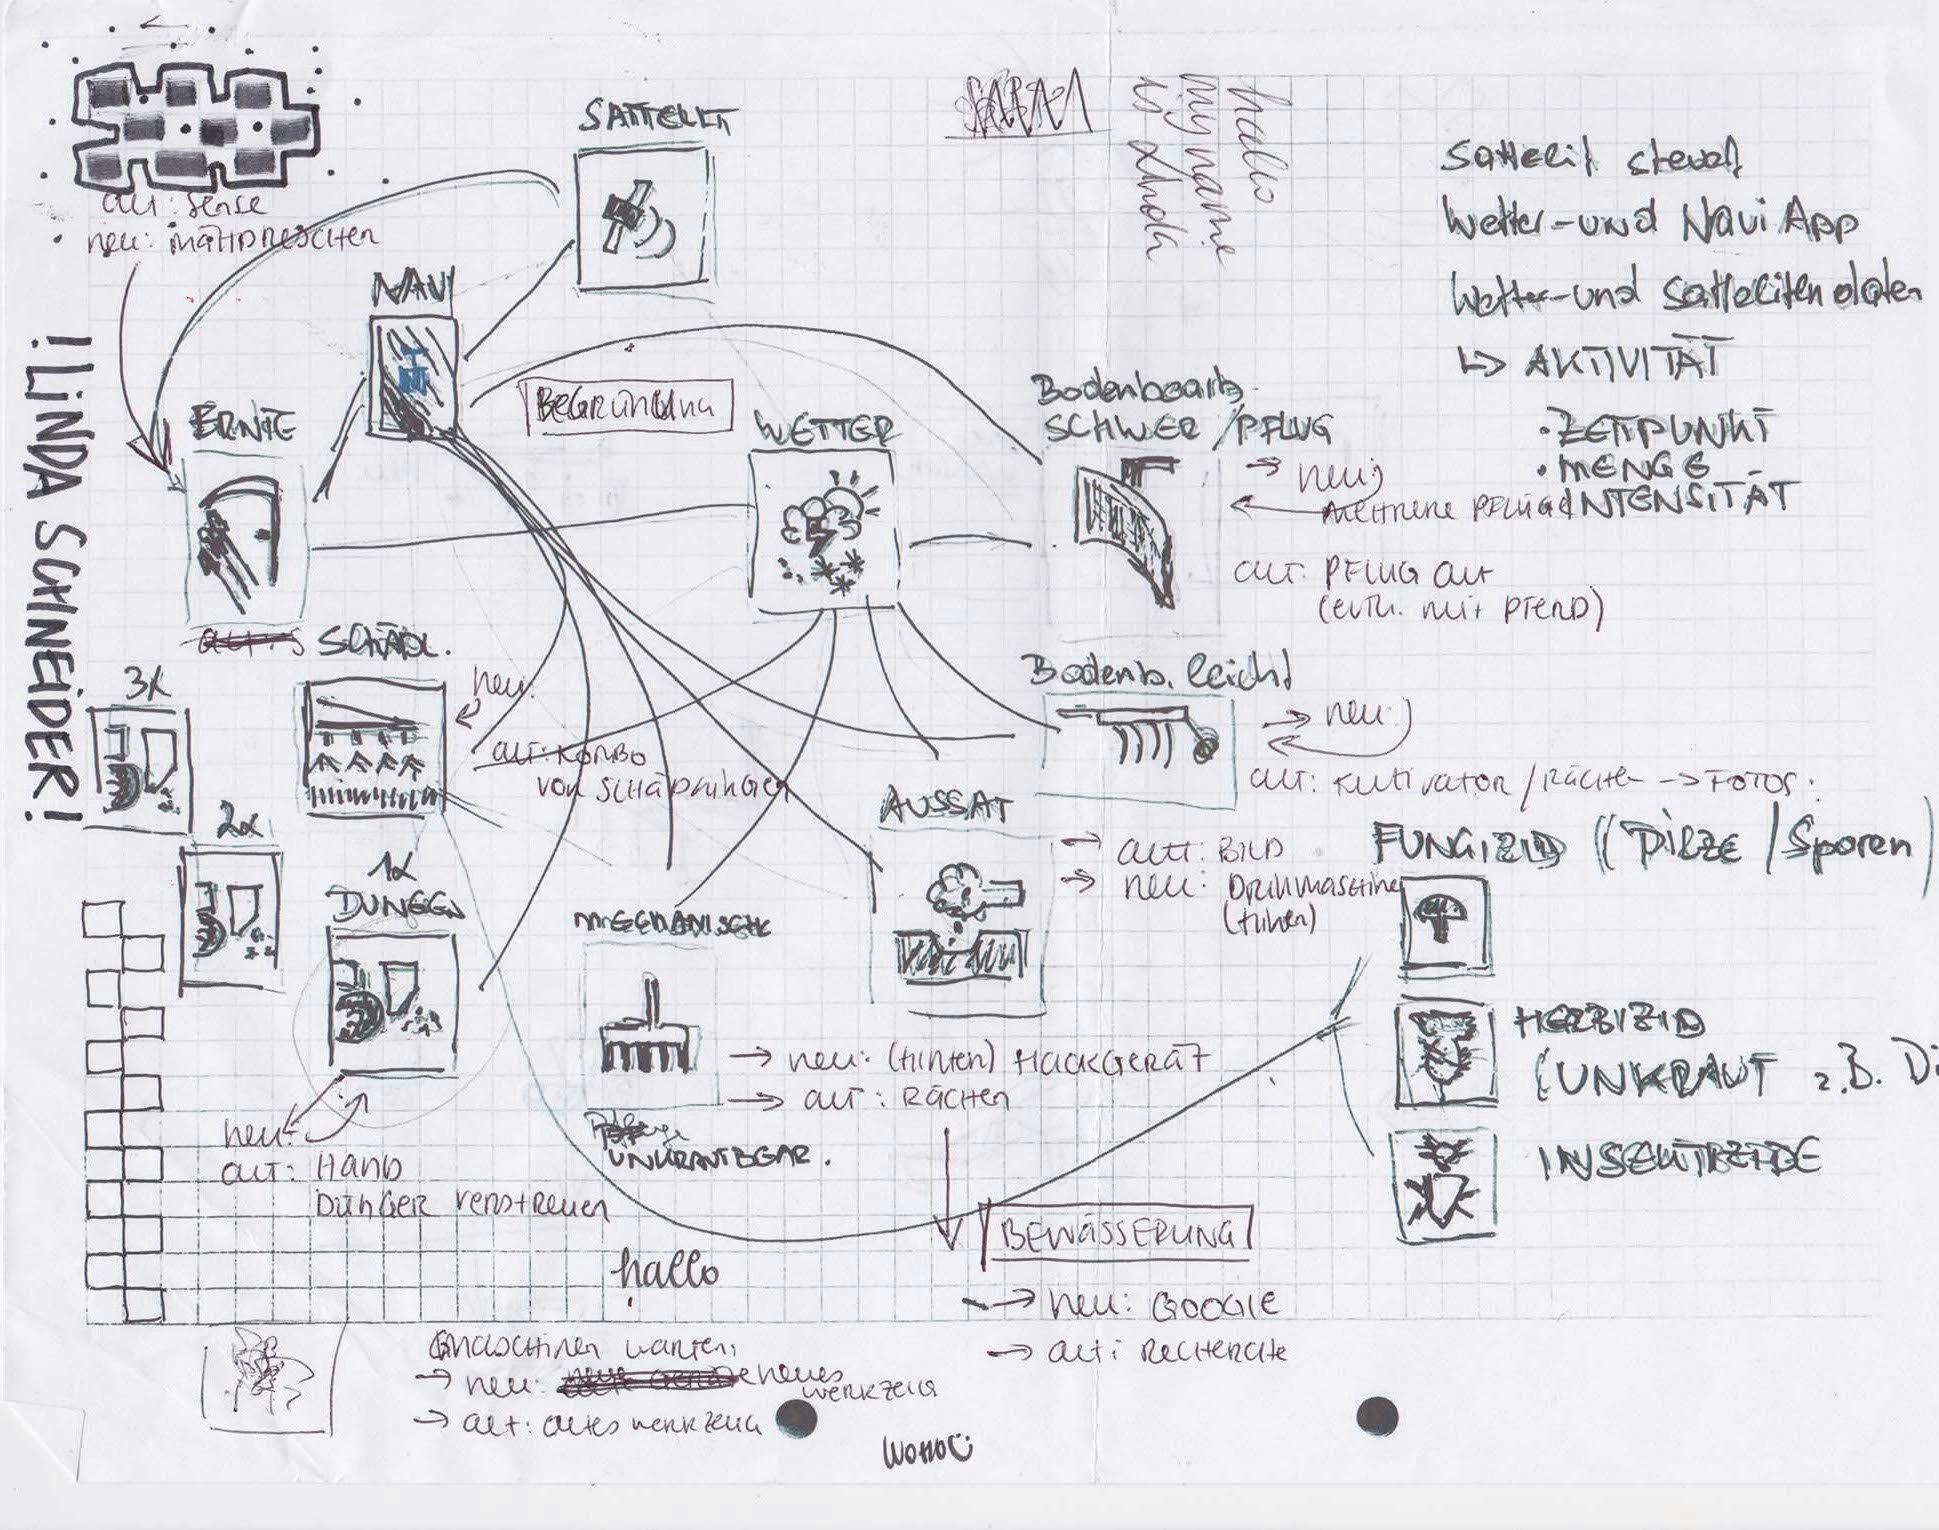 SATTELIT
hallo
my name
is Linda
Sattelit steuert
Wetter- und Navi App
Wetter- und Sattelitendaten
↳ AKTIVITÄT
· ZEITPUNKT
· MENGE
INTENSITÄT
alt: Sense
neu: MÄHDRESCHER
NAVI
ERNTE
BEGRÜNDUNG
WETTER
Bodenbearb.
SCHWER / PFLUG
→ neu:
mehrere PFLÜGE
alt: PFLUG alt
(evtl. mit PFERD)
! LINDA SCHNEIDER!
SCHÄDL.
neu:
alt: KOMBO
von SCHÄDLINGEN
Bodenb. leicht
→ neu:
alt: Kultivator / RÄCHEN → FOTOS:
3x
2x
1x
DÜNGEN
MECHANISCHE
AUSSAT
→ alt: BILD
→ neu: DRILLMASCHINE
FUNGIZID (PILZE / Sporen)
HERBIZID
(UNKRAUT z.B. Di
INSEKTIZIDE
→ neu: (HINTEN) HACKGERÄT
→ alt: RÄCHEN
UNKRAUTBEAR.
neu:
alt: HAND
DÜNGER verstreuen
BEWÄSSERUNG
→ neu: GOOGLE
→ alt: RECHERCHE
hallo
MASCHINEN warten:
→ neu: neues
WERKZEUG
→ alt: altes WERKZEUG
WOHOO